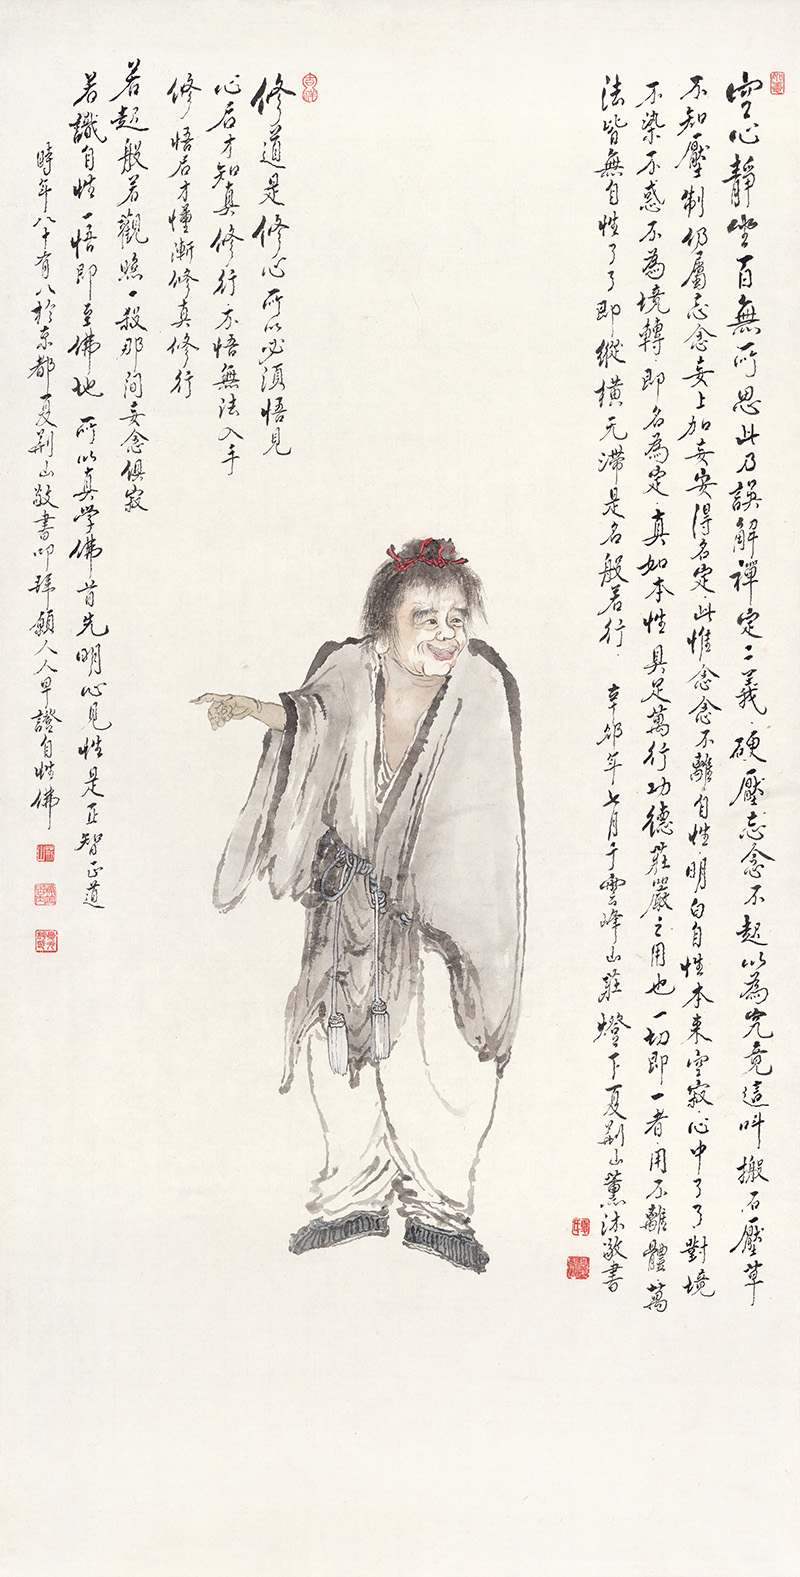 空心靜坐百無所思此乃誤解禪定二義硬壓忘念不起以為究竟這叫搬石壓草
不知壓制仍屬忘念妄上加妄安得名定此惟念念不離自性明白自性本來空寂心中了了對境
不染不惑不為境轉即名為定真如本性具足萬行功德莊嚴之用也一切即一者用不離體萬
法皆無自性了了即縱橫无滯是名般若行 辛卯年七月于雲峰山莊燈下夏荊山薰沐敬書
修道是修心所以必須悟見
心后才知真修行不悟無法入手
修悟后才懂漸修真修行
若起般若觀照一殺那间妄念俱寂
若識自性一悟即至佛地所以真学佛首先明心見性是正智正道
時年八十有八於京都夏荊山敬書叩拜願人人早證自性佛
吉祥